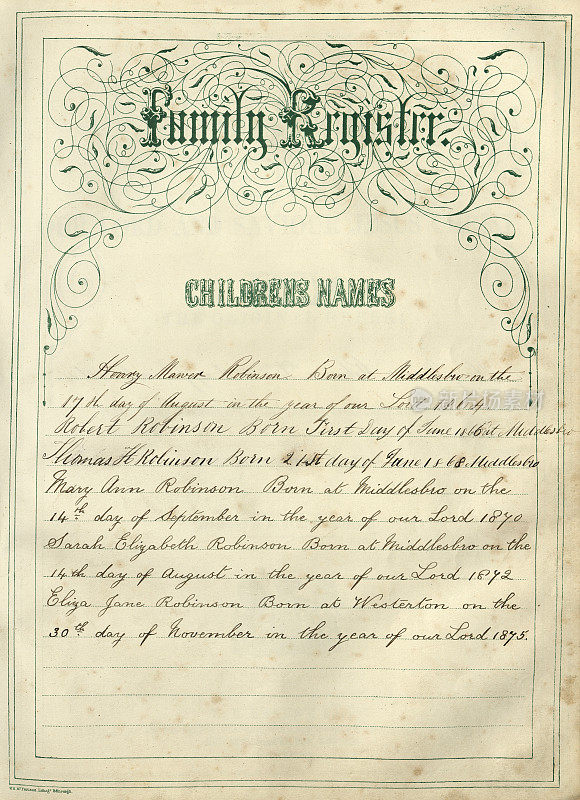 Family Register.
CHILDRENS NAMES
Henry Mawer Robinson Born at Middlesbro on the
17th day of August in the year of our Lord
Robert Robinson Born First Day of June 1866 at Middlesbro
Thomas H Robinson Born 21st day of June 1868 Middlesbro
Mary Ann Robinson Born at Middlesbro on the
14th day of September in the year of our Lord 1870
Sarah Elizabeth Robinson Born at Middlesbro on the
14th day of August in the year of our Lord 1872
Eliza Jane Robinson Born at Westerton on the
30th day of November in the year of our Lord 1875.